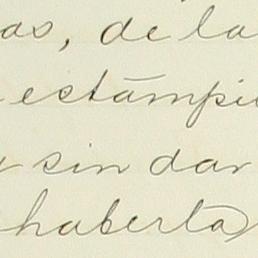 as, de la
estampi
sin dar
haberla